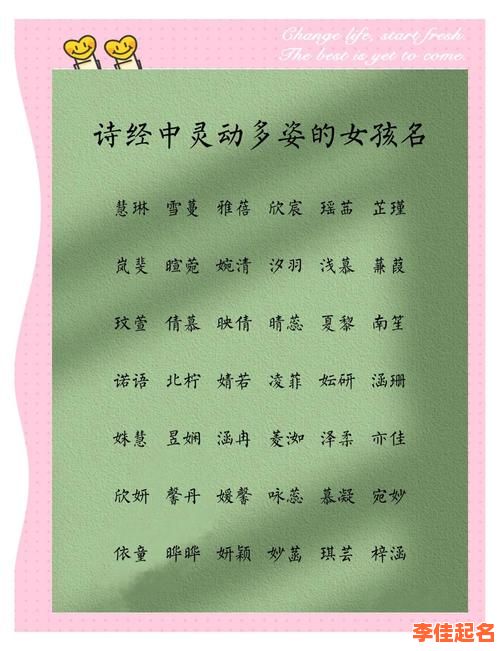 Change life, start fresh.
The best is yet to come.
诗经中灵动多姿的女孩名
慧琳 雪蔓 雅蓓 欣宸 瑶茁 芷瑾
岚斐 暄菀 婉清 汐羽 浅慕 蒹葭
玟萱 倩慕 映倩 晴蕊 夏黎 南笙
诺语 北柠 婧若 凌菲 妘研 涵珊
姝慧 昱娴 涵冉 菱洳 泽柔 亦佳
欣妍 馨丹 媛馨 咏蕊 慕凝 宛妙
依童 晔晔 妍颖 妙菡 琪芸 梓涵
李佳起名